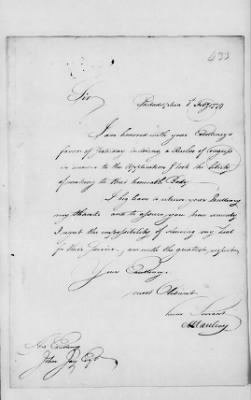 433
Philadelphia 5 Feby 1779
Sir
I am honored with your Excellency's
favor of Yesterday inclosing a Resolve of Congress
in answer to the Application I took the liberty
of making to that honorable Body
I beg leave to return your Excellency
my thanks and to assure you how
I regret the impossibility of shewing my Zeal
for their Service, I am with the greatest respect
Your Excellency
most Obedient
hum Servant
His Excellency
John Jay Esqr